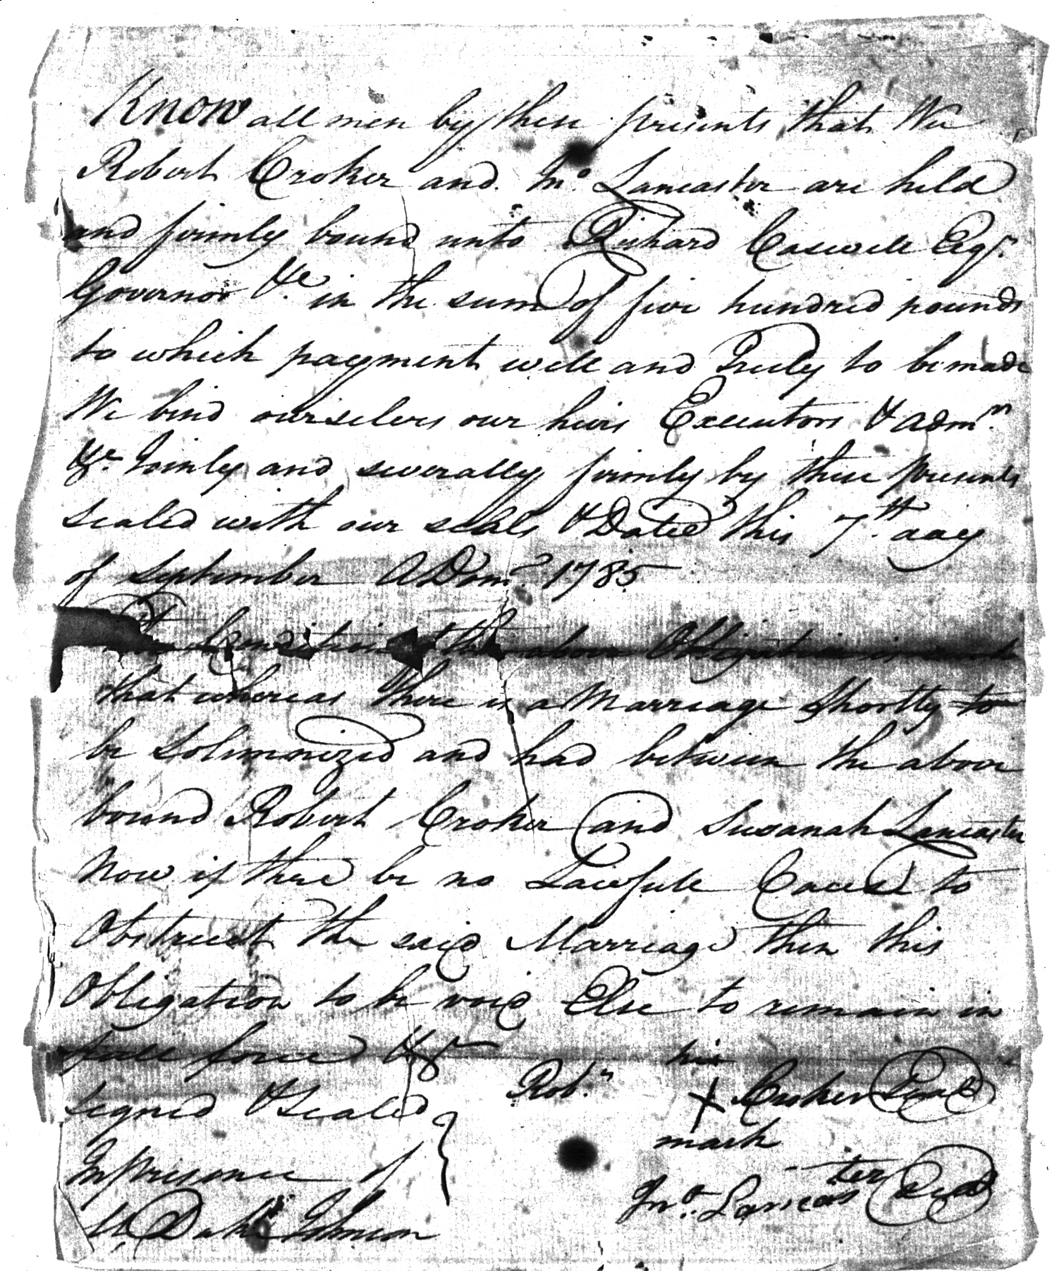 Know all men by these presents that We
Robert Croker and Jno Lancaster are held
and firmly bound unto Richard Caswell Esqr
Governor &c in the sum of five hundred pounds
to which payment well and Truly to be made
We bind ourselves our heirs Executors & Adm
&c Jointly and severally firmly by these presents
sealed with our seals & Dated this 7th day
of September A Dom 1785
Condition the above Obligation is
that whereas there is a Marriage Shortly to
be Solemnized and had between the above
bound Robert Croker and Susanah Lancaster
Now if there be no Lawfull Cause to
Obstruct the said Marriage then this
Obligation to be void Else to remain in
full force &c
signed & sealed
In presence of
Johnson
his
Robt X Croker Seal
mark
Jno Lancaster Seal